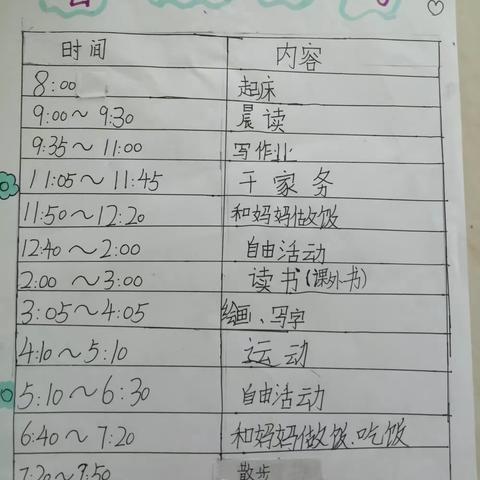 时间 内容
8:00 起床
9:00～9:30 晨读
9:35～11:00 写作业
11:05～11:45 干家务
11:50～12:20 和妈妈做饭
12:40～2:00 自由活动
2:00～3:00 读书(课外书)
3:05～4:05 绘画、写字
4:10～5:10 运动
5:10～6:30 自由活动
6:40～7:20 和妈妈做饭、吃饭
7:20～7:50 散步